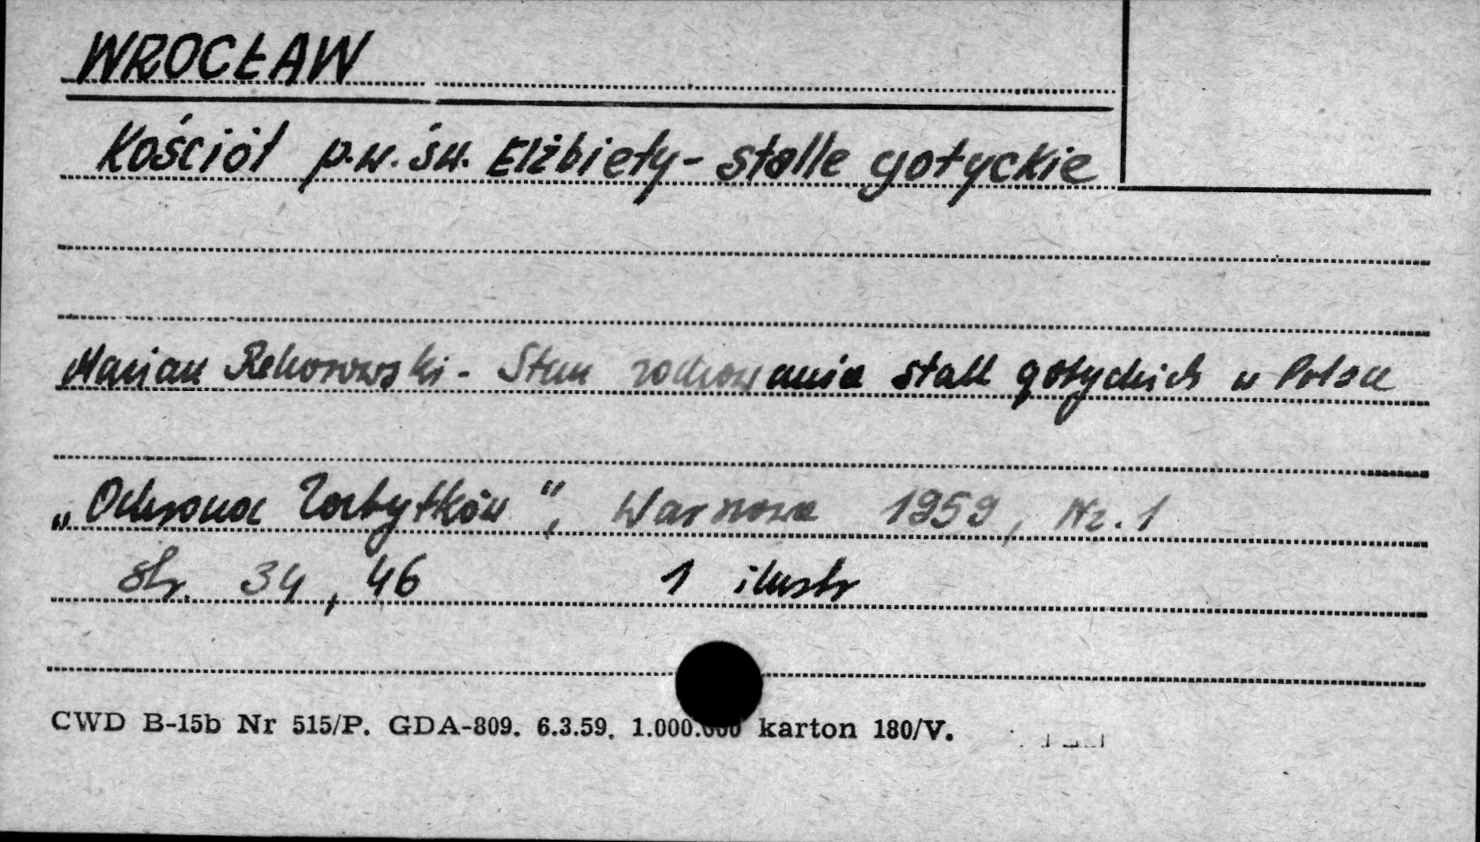 WROCŁAW
Kościół p.w. św. Elżbiety - stalle gotyckie
Marian Rehorowski - Stan zachowania stall gotyckich w Polsce
„Ochrona Zabytków", Warszawa 1959, Nr. 1
str. 34, 46 1 ilustr
CWD B-15b Nr 515/P. GDA-809. 6.3.59. 1.000.000 karton 180/V.